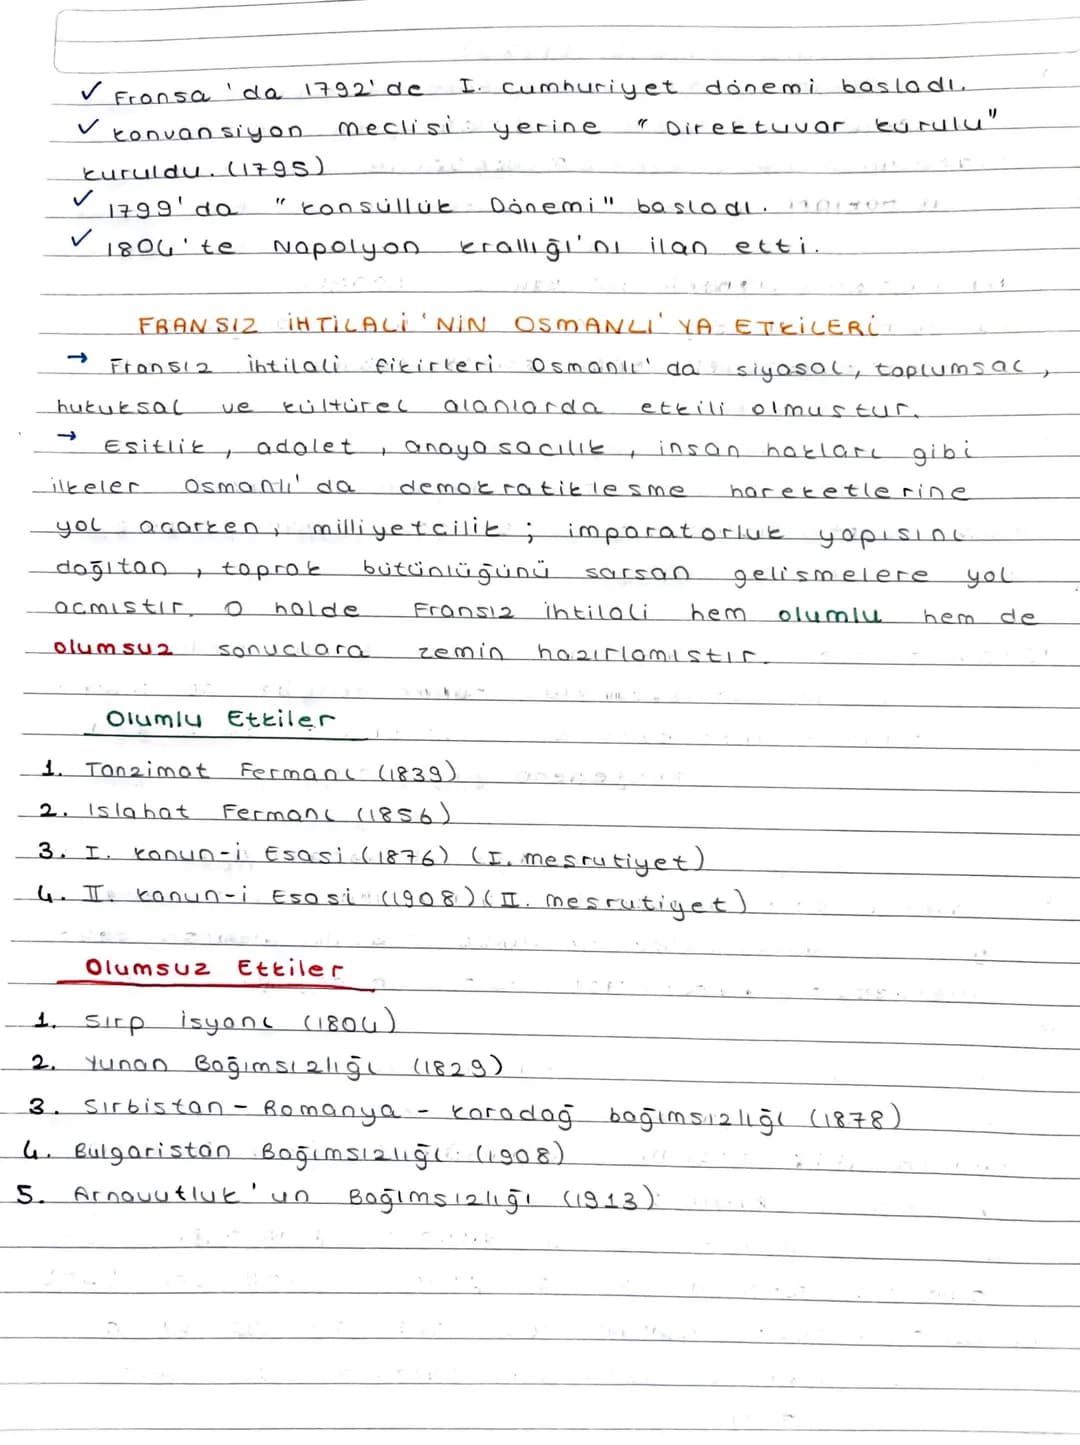 ✓ Fransa'da 1792'de I. cumhuriyet dönemi basladı.
✓ Konvansiyon meclisi yerine "Direktuvar Kurulu"
kuruldu. (1795)
✓ 1799'da "Konsüllük Dönemi" basladı.
✓ 1804'te Napolyon krallığı'nı ilan etti.
FRANSIZ İHTİLALİ'NİN OSMANLI'YA ETKİLERİ
→ Fransız ihtilali fikirleri Osmanlı'da siyasal, toplumsal,
hukuksal ve kültürel alanlarda etkili olmustur.
→ Esitlik, adalet, anayasacılık, insan hakları gibi
ilkeler Osmanlı'da demokratiklesme hareketlerine
yol acarken, milliyetcilik; imparatorluk yapısını
dağıtan, toprak bütünlüğünü sarsan gelismelere yol
acmıstır. O halde Fransız ihtilali hem olumlu hem de
olumsuz sonuclara zemin hazırlamıstır.
Olumlu Etkiler
1. Tanzimat Fermanı (1839)
2. Islahat Fermanı (1856)
3. I. Kanun-i Esasi (1876) (I. mesrutiyet)
4. II. Kanun-i Esasi (1908) (II. mesrutiyet)
Olumsuz Etkiler
1. Sırp isyanı (1804)
2. Yunan Bağımsızlığı (1829)
3. Sırbistan - Romanya - Karadağ bağımsızlığı (1878)
4. Bulgaristan Bağımsızlığı (1908)
5. Arnavutluk'un Bağımsızlığı (1913)